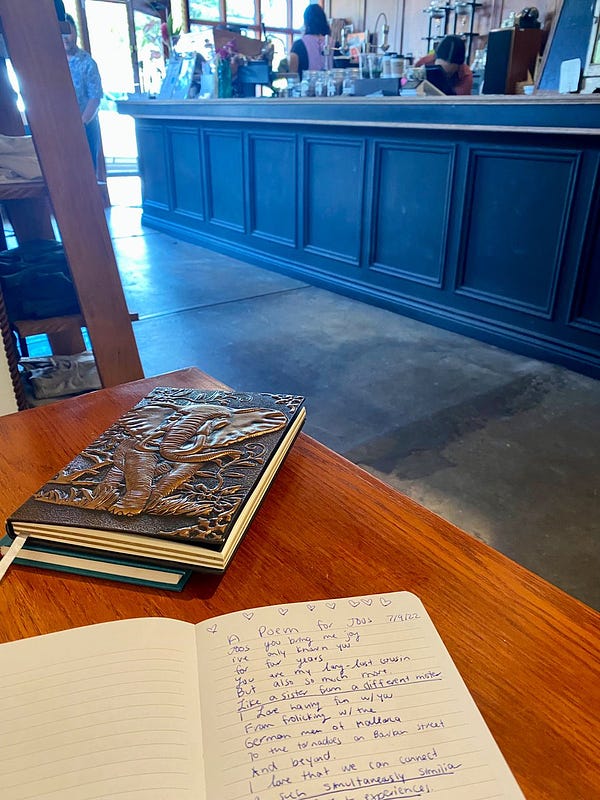 A Poem for JOOS 7/9/22
Joos you bring me joy
I've only known you
for four years
You are my long-lost cousin
But also so much more
Like a sister from a different mister
I Love having fun w/ you
From frolicking w/ the
German men of Mallorca
To the tornadoes on Bourbon Street
And beyond
I love that we can connect
such simultaneously similia
experiences.